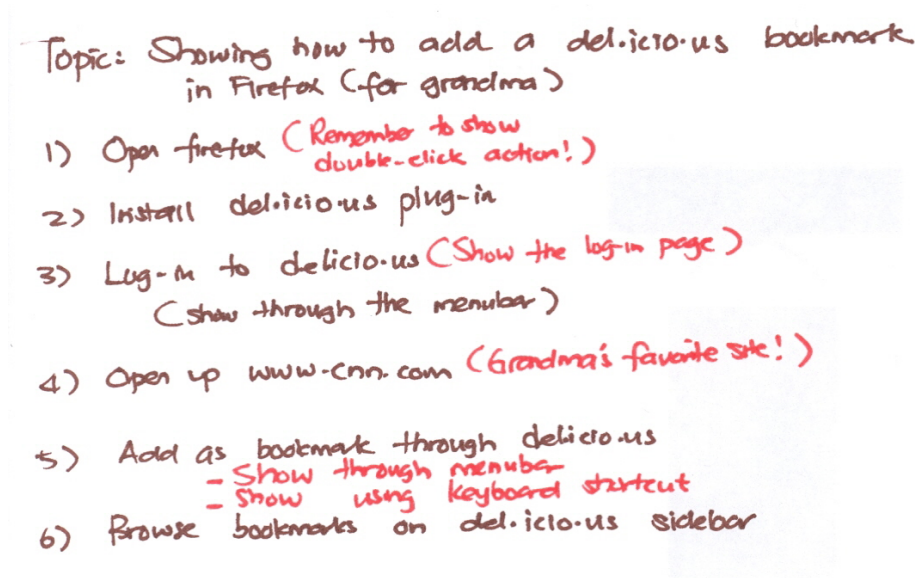 Topic: Showing how to add a del.icio.us bookmark
in Firefox (for grandma)
1) Open firefox (Remember to show
double-click action!)
2) Install del.icio.us plug-in
3) Log-in to delicio.us (Show the log-in page)
(show through the menubar)
4) Open up www.cnn.com (Grandma's favorite site!)
5) Add as bookmark through delicio.us
- Show through menubar
- Show using keyboard shortcut
6) Browse bookmarks on del.icio.us sidebar